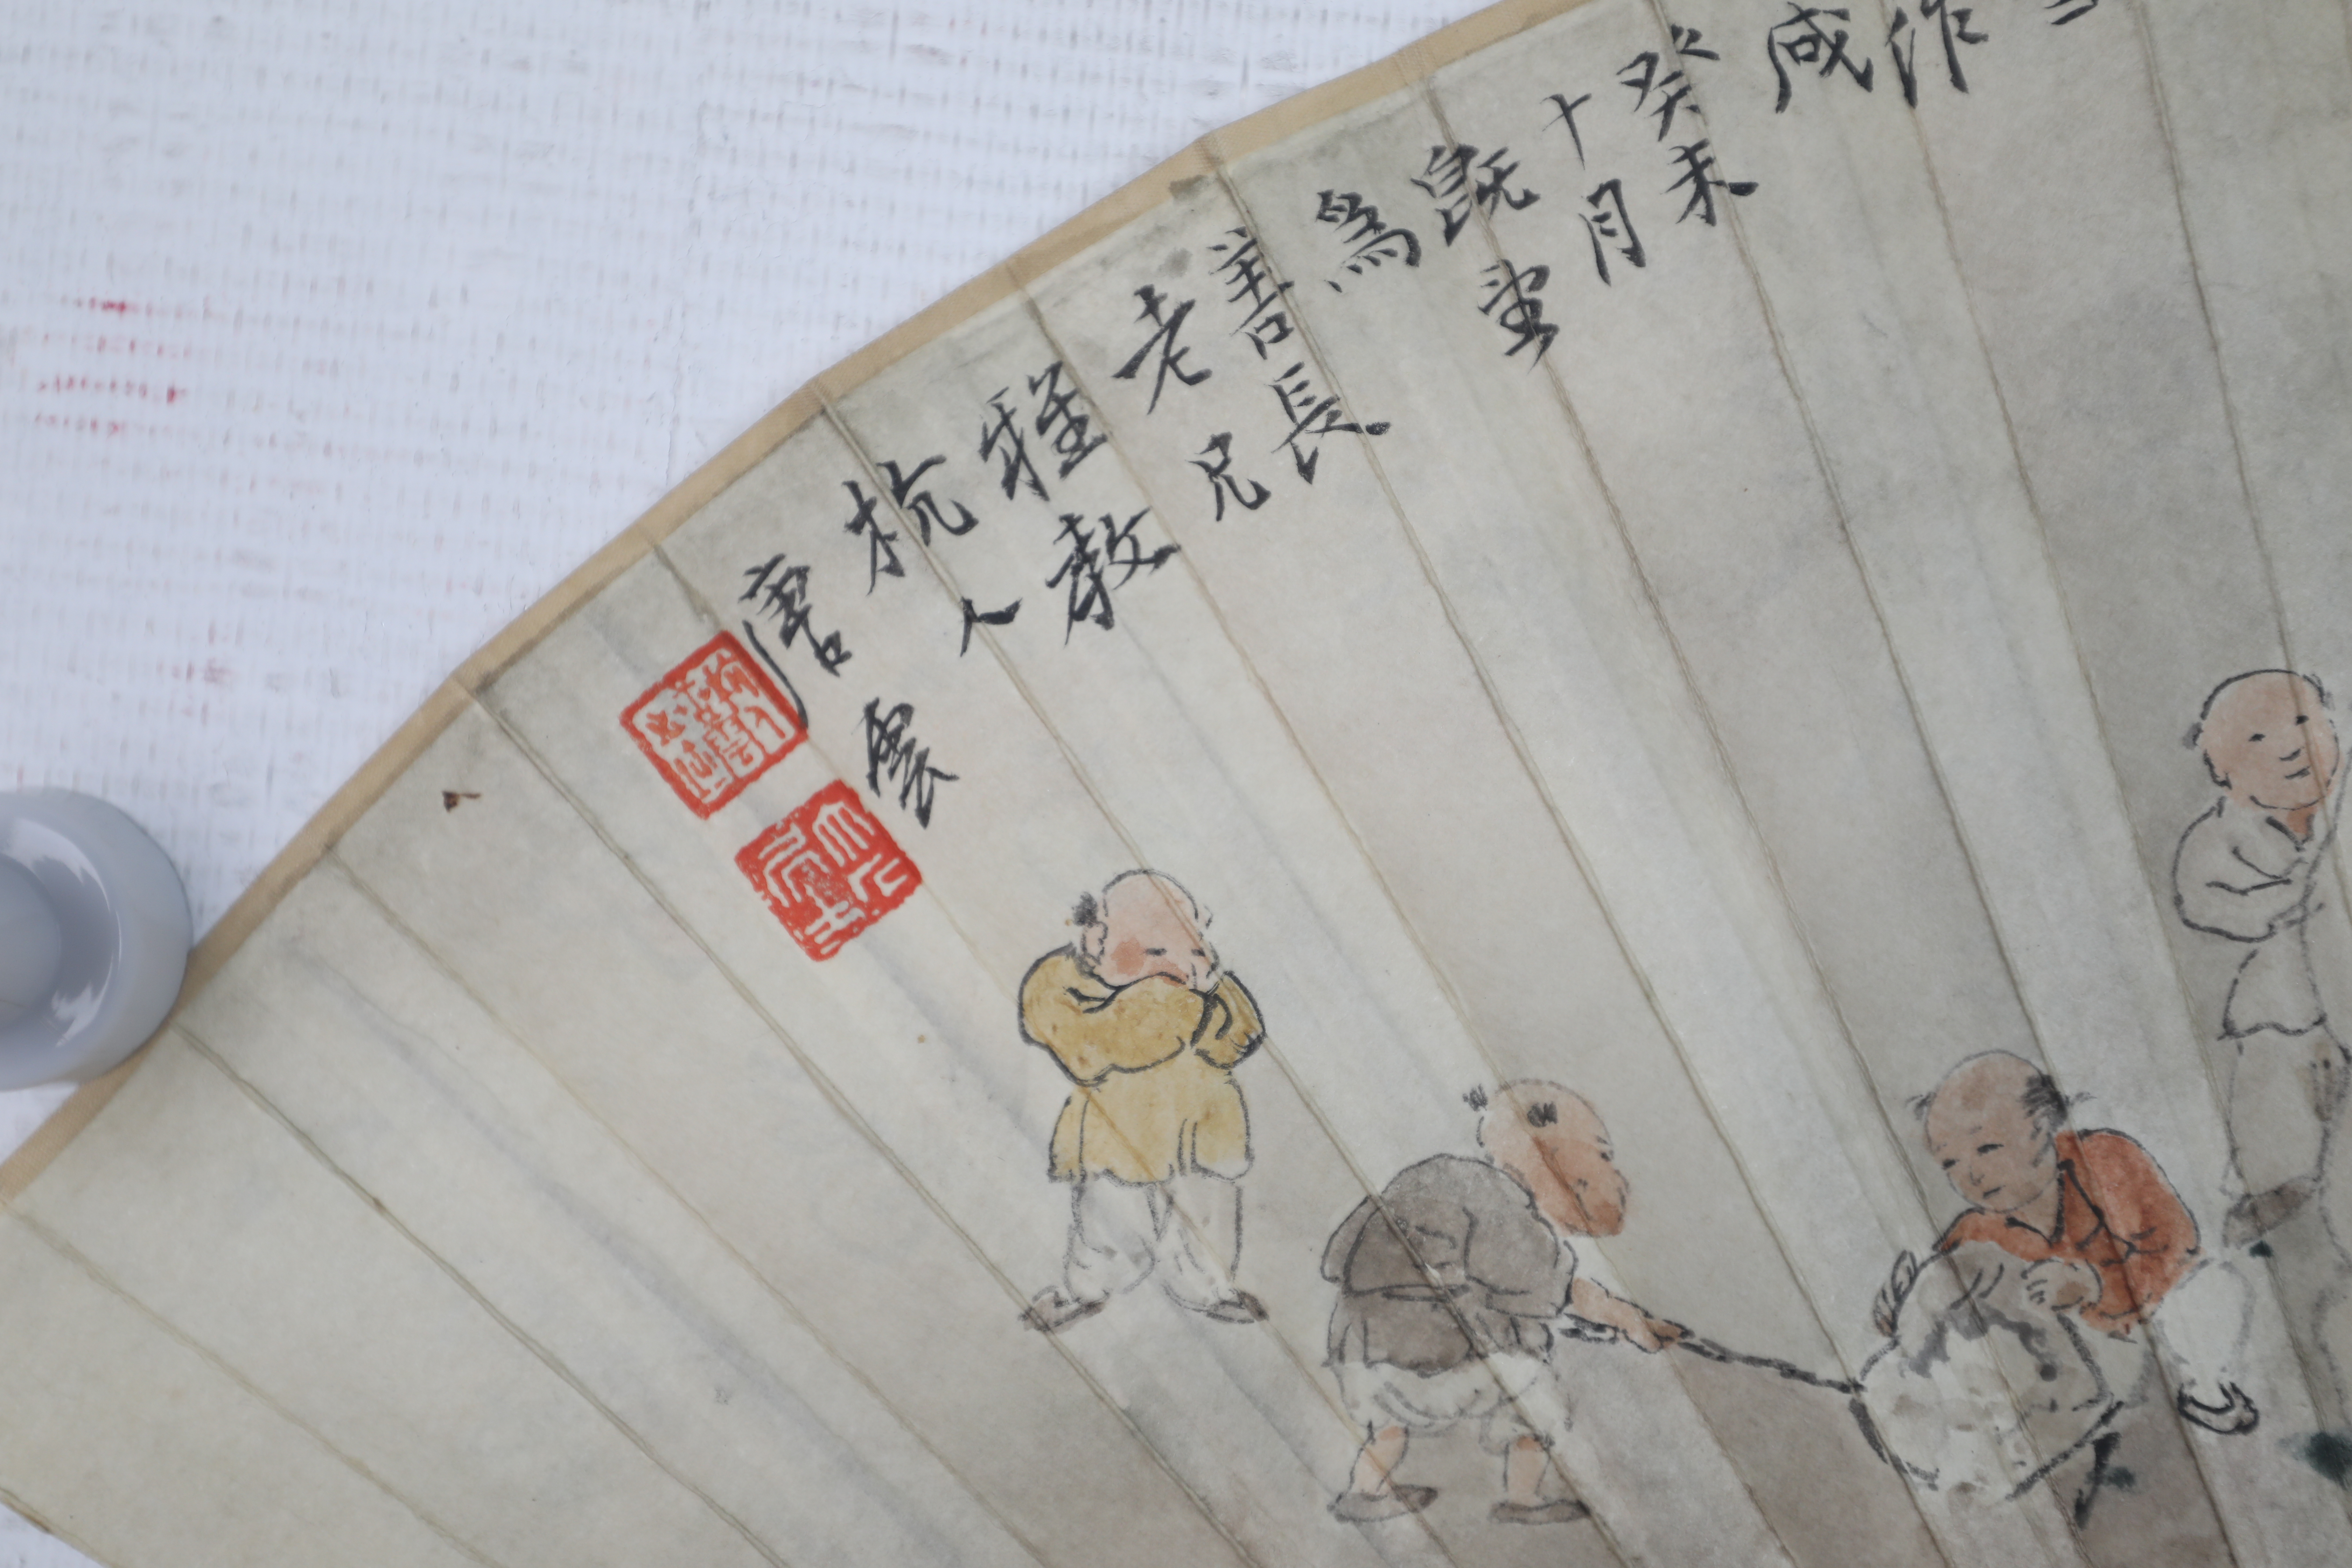 作
咸
癸未
十月
既望
為
善長
老兄
雅教
杭人
唐雲